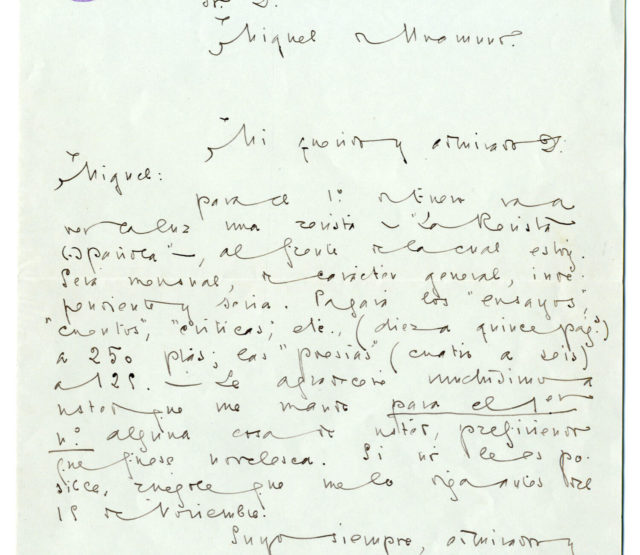 Sr. D.
Miguel de Unamuno.
Mi querido y admirado D.
Miguel:
para el 1º de Enero va a
ver la luz una revista – "La Revista
Española" –, al frente de la cual estoy.
Será mensual, de carácter general, inde-
pendiente y seria. Pagará los "ensayos",
"cuentos", "críticas", etc., (diez a quince pág.s)
a 250 ptas; las "poesías" (cuatro a seis)
a 125. – Le agradeceré muchísimo a
usted que me mande para el 1er
nº alguna cosa de usted, prefiriendo
que fuese novelesca. Si no le es po-
sible, ruégole que me lo diga antes del
15 de Noviembre.
Suyo siempre, admirador y